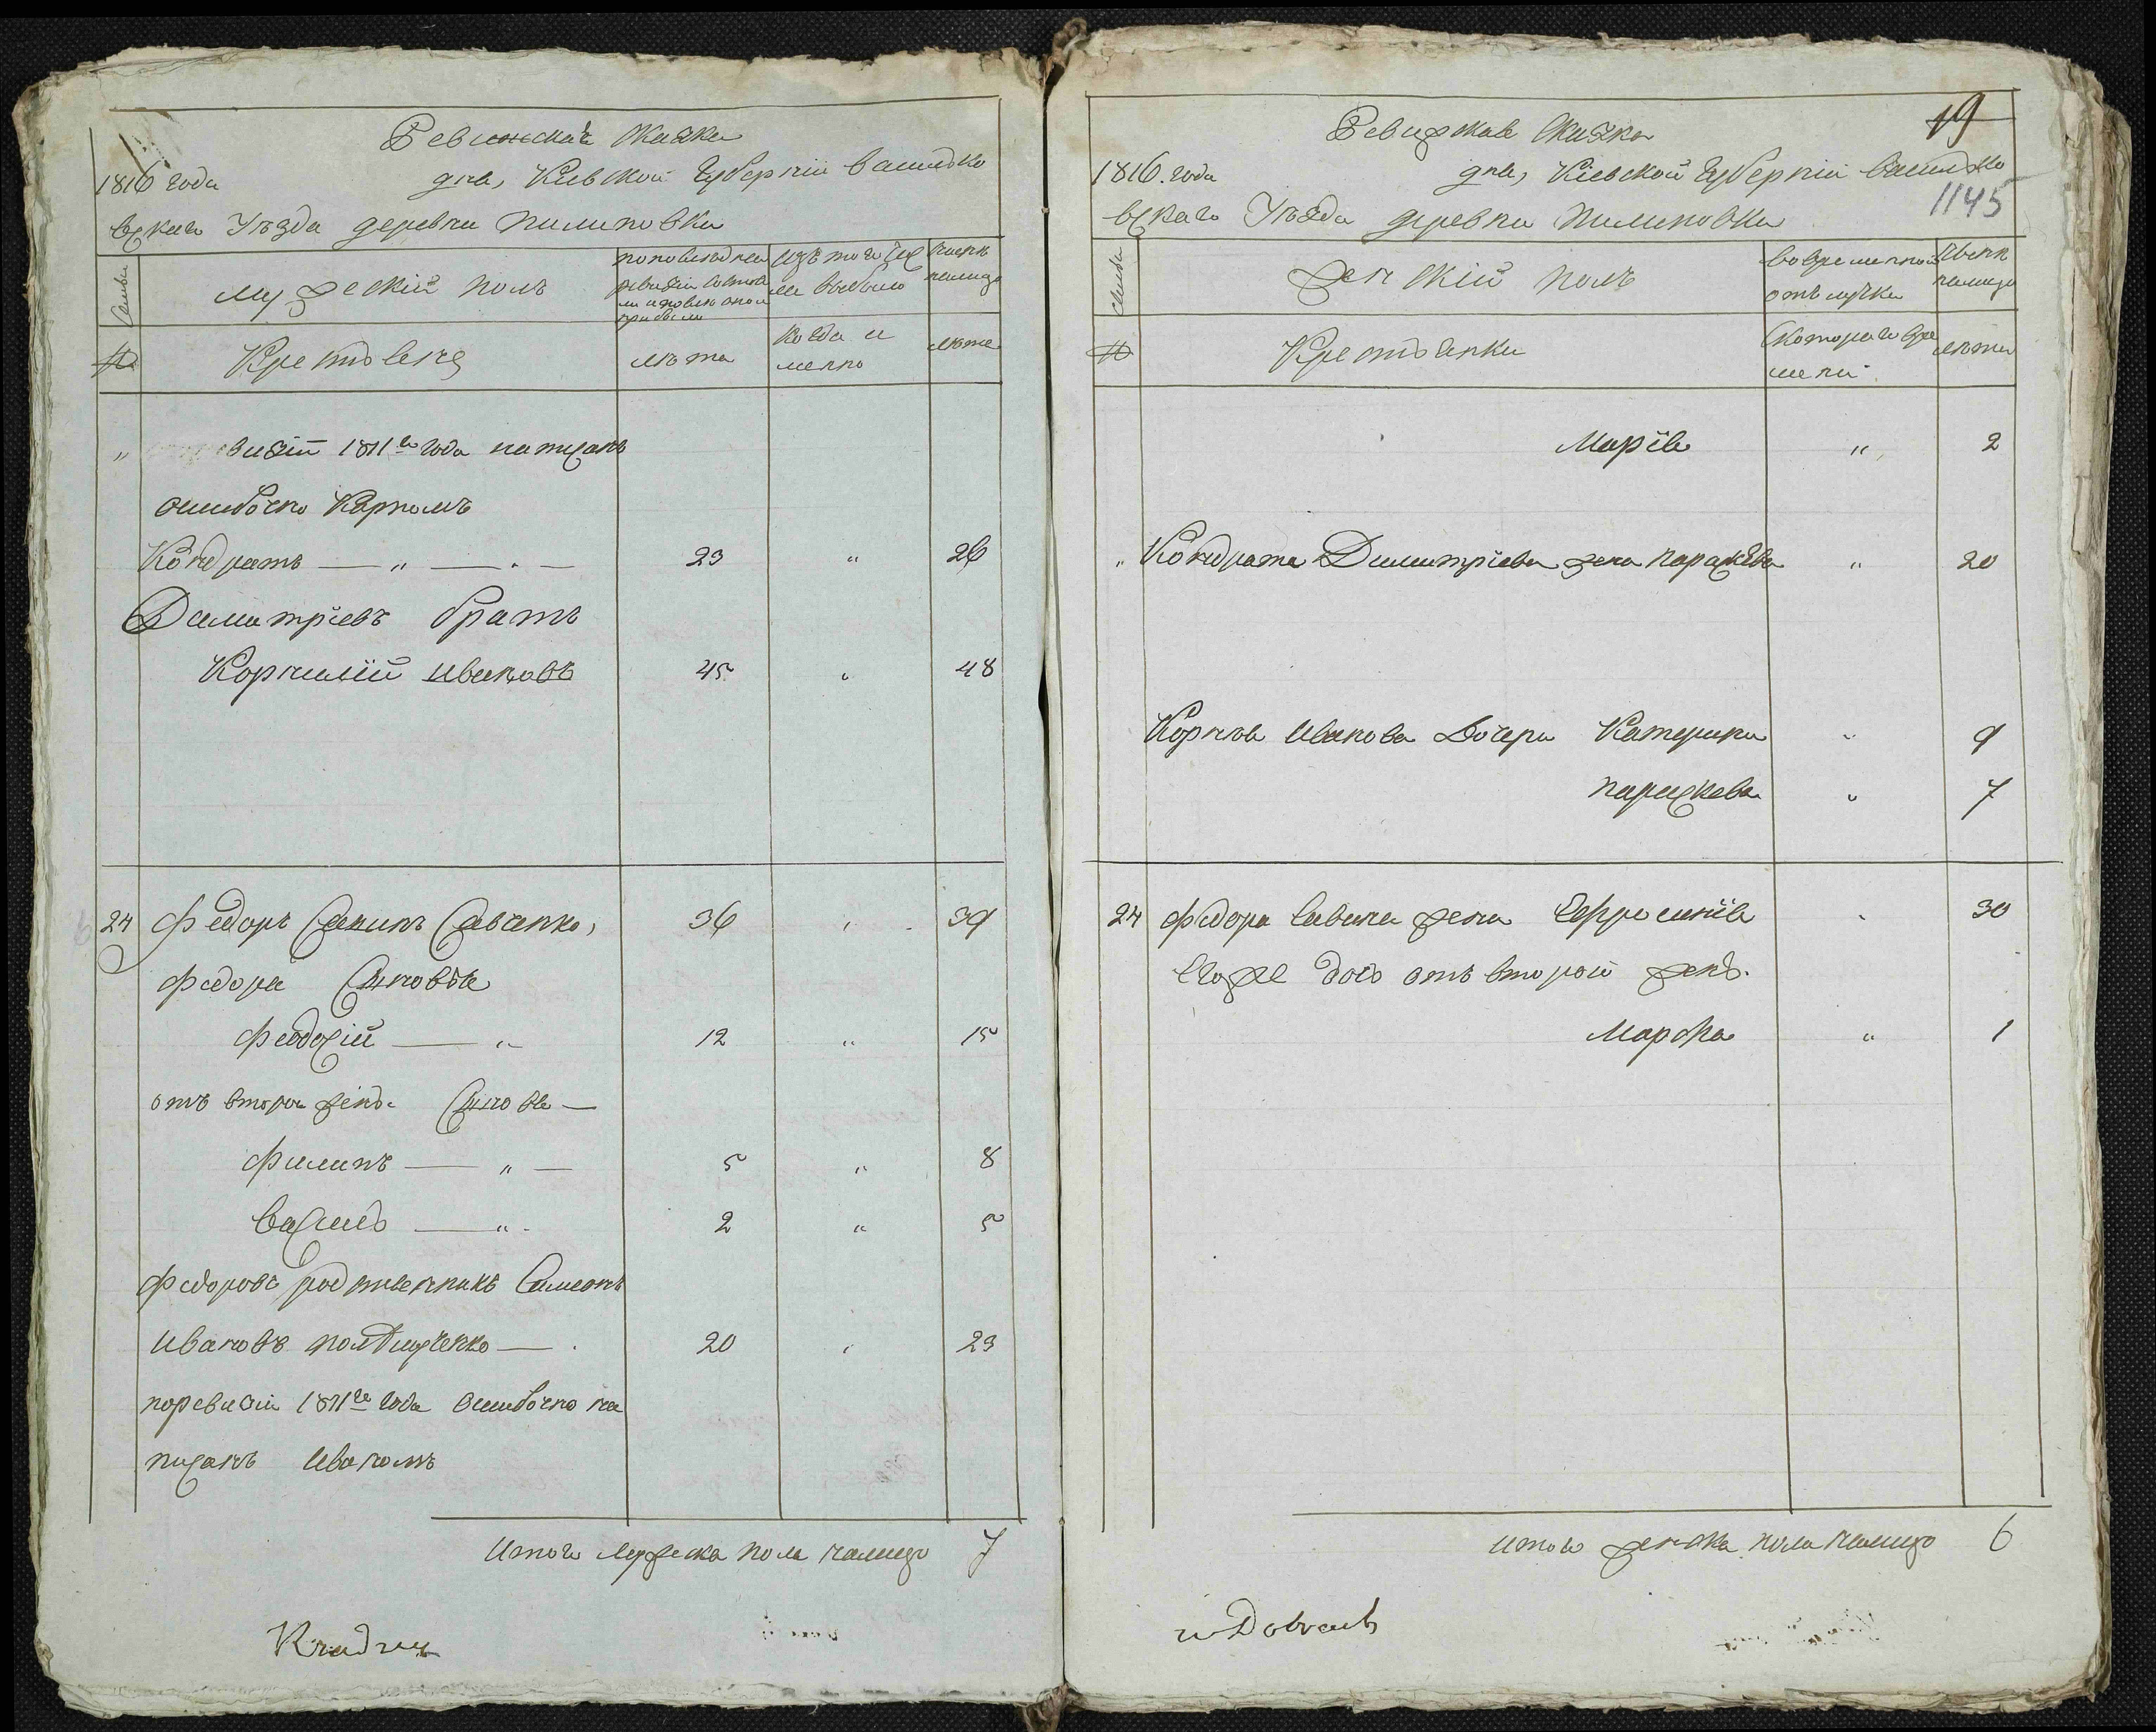 Ревижская сказка
1816 года дня, Киевской Губернии василко
вскаго Уѣзда деревни Пилиповки
Семьи
мужеский полъ
по последней ревизии состоя
ло и после оной прибыло
изъ того числа выбыло
ныне налицо
№
Крестьяне
лѣта
когда и
менно
лѣта
"
визіи 1811го года написанъ
ошибочно Карпомъ
Кондратъ — " — . — 23 " 26
Димитріевъ братъ
Корнилій Ивановъ 45 " 48
24 Федоръ Савинъ Савченко, 36 " 39
Федора Сыновья
Феодосій — " 12 " 15
отъ вторы жены Сыновья —
Филипъ — " — 5 " 8
Василь — " 2 " 5
Федоровъ родственникъ Симеонъ
Ивановъ Полищченко — . 20 " 23
поревизіи 1811го года ошибочно на
писанъ Иваномъ
Итого мужеска пола налицо 7
19
Ревижская сказка
1816. года дня, Кіевской Губерніи василко
1145
вскаго Уѣзда деревни Пилиповки
Семьи
женскій полъ
во временной
отлучки
ныне
налицо
№
Крестьянки
Скотораго вре
мени
лѣта
Марія " 2
" Кондрата Димитріева жена Параскева " 20
Корнея Иванова Дочери Катерина " 9
Параскева " 7
24 Федора Савина жена Ефросинія " 30
Егоже дочь отъ второй жены
Марфа " 1
Итого женска пола налицо 6